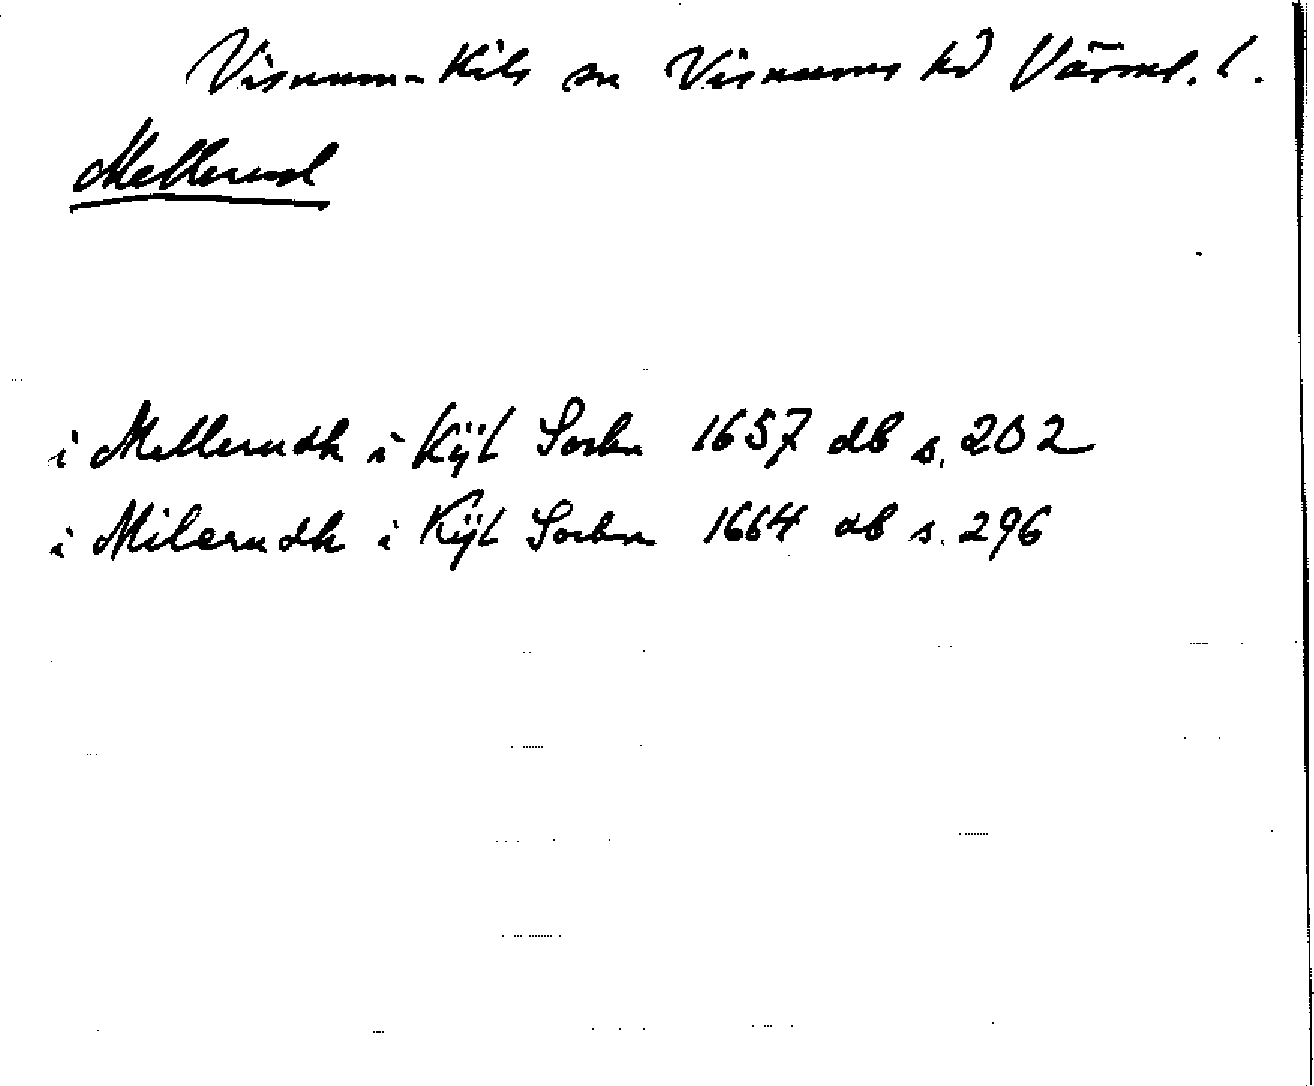 Visnum-Kils sn Visnums hd Värml. l.
Mellerud
i Mellerudh i Kÿl Sochn 1657 db s. 202
i Milerudh i Kÿl Sochn 1664 db s. 296